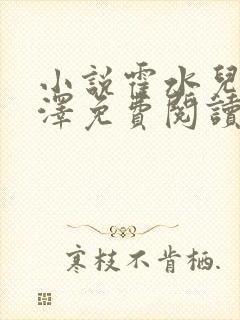 小說霍水兒
澤免費閱讀
寒枝不肯栖.